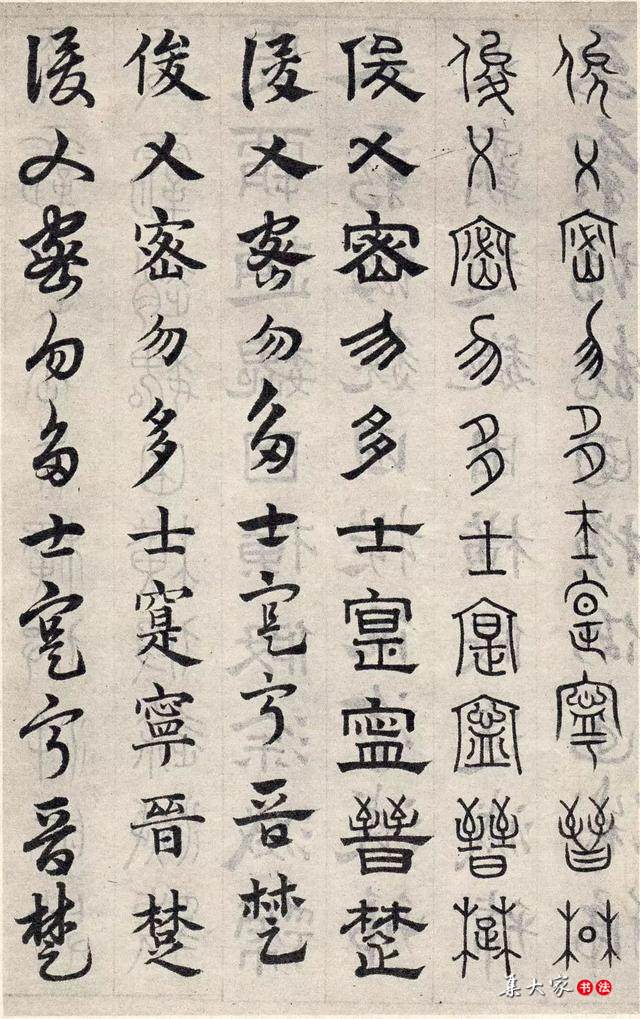 俊乂密勿多士寔寧晉楚
俊乂密勿多士寔寧晉楚
俊乂密勿多士寔寧晉楚
俊乂密勿多士寔寧晉楚
俊乂密勿多士寔寧晉楚
俊乂密勿多士寔寧晉楚
集大家书法